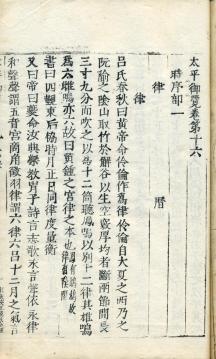 太平御覽卷第十六
時序部一
律 曆
律
呂氏春秋曰黃帝命伶倫作爲律伶倫自大夏之西乃之
阮隃之陰山取竹於嶰谷以生空竅厚均者斷兩節間長
三寸九分而吹之以爲十二筒聽鳳鳴以別十二律其雄鳴
爲六雌鳴亦六故曰黃鍾之宮律之本也
書曰四覲東后協時月正日同律度量衡
又曰帝曰夔命汝典樂敎冑子詩言志歌永言聲依永律
和聲聲謂五音宮商角徵羽律謂六律六呂十二月之氣言